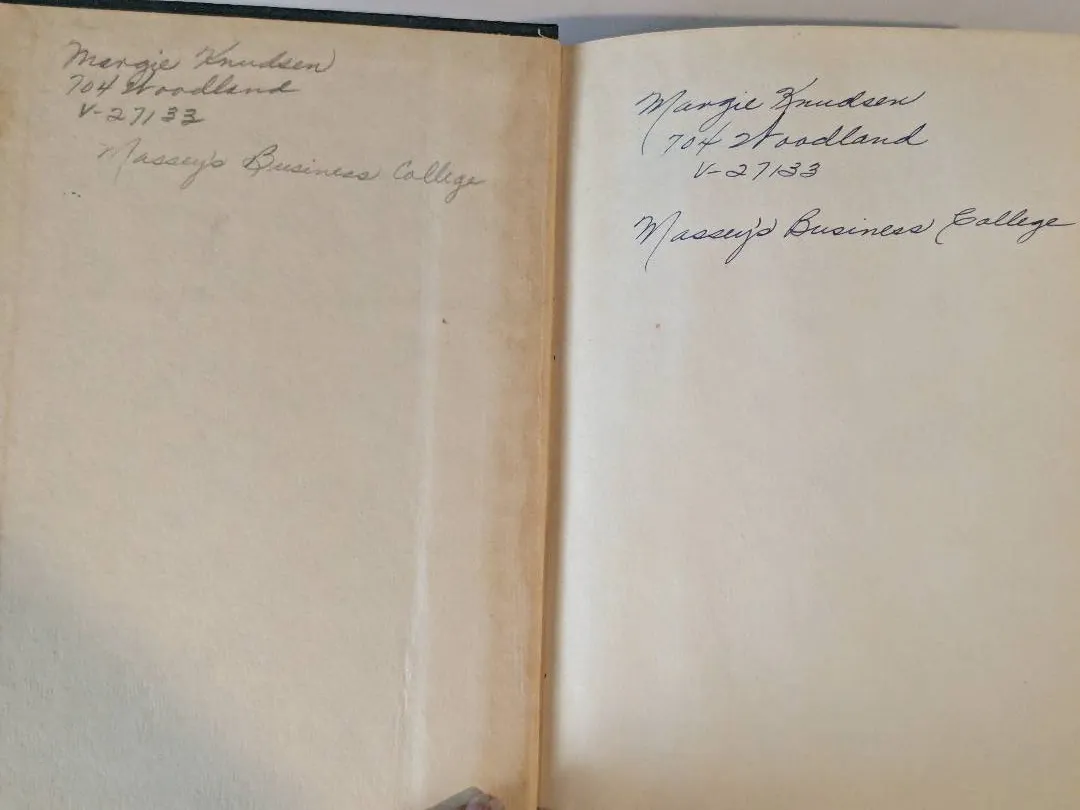 Margie Knudsen
704 Woodland
V-27133
Massey's Business College
Margie Knudsen
704 Woodland
V-27133
Massey's Business College